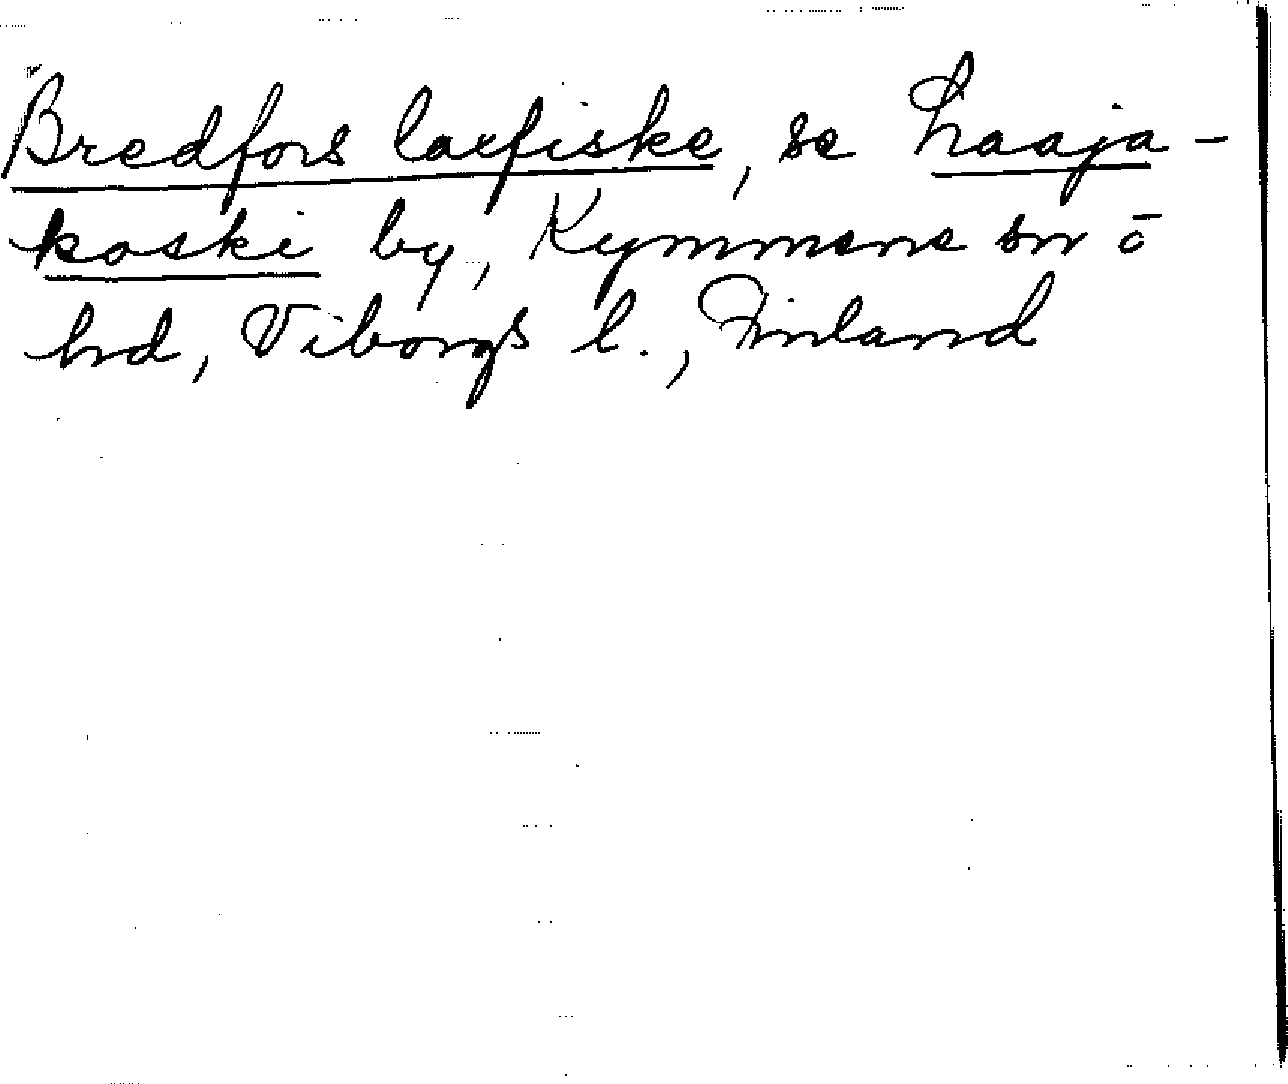 Bredfors laxfiske, se Laaja-
koski by, Kymmene sn o
hd, Viborgs l., Finland